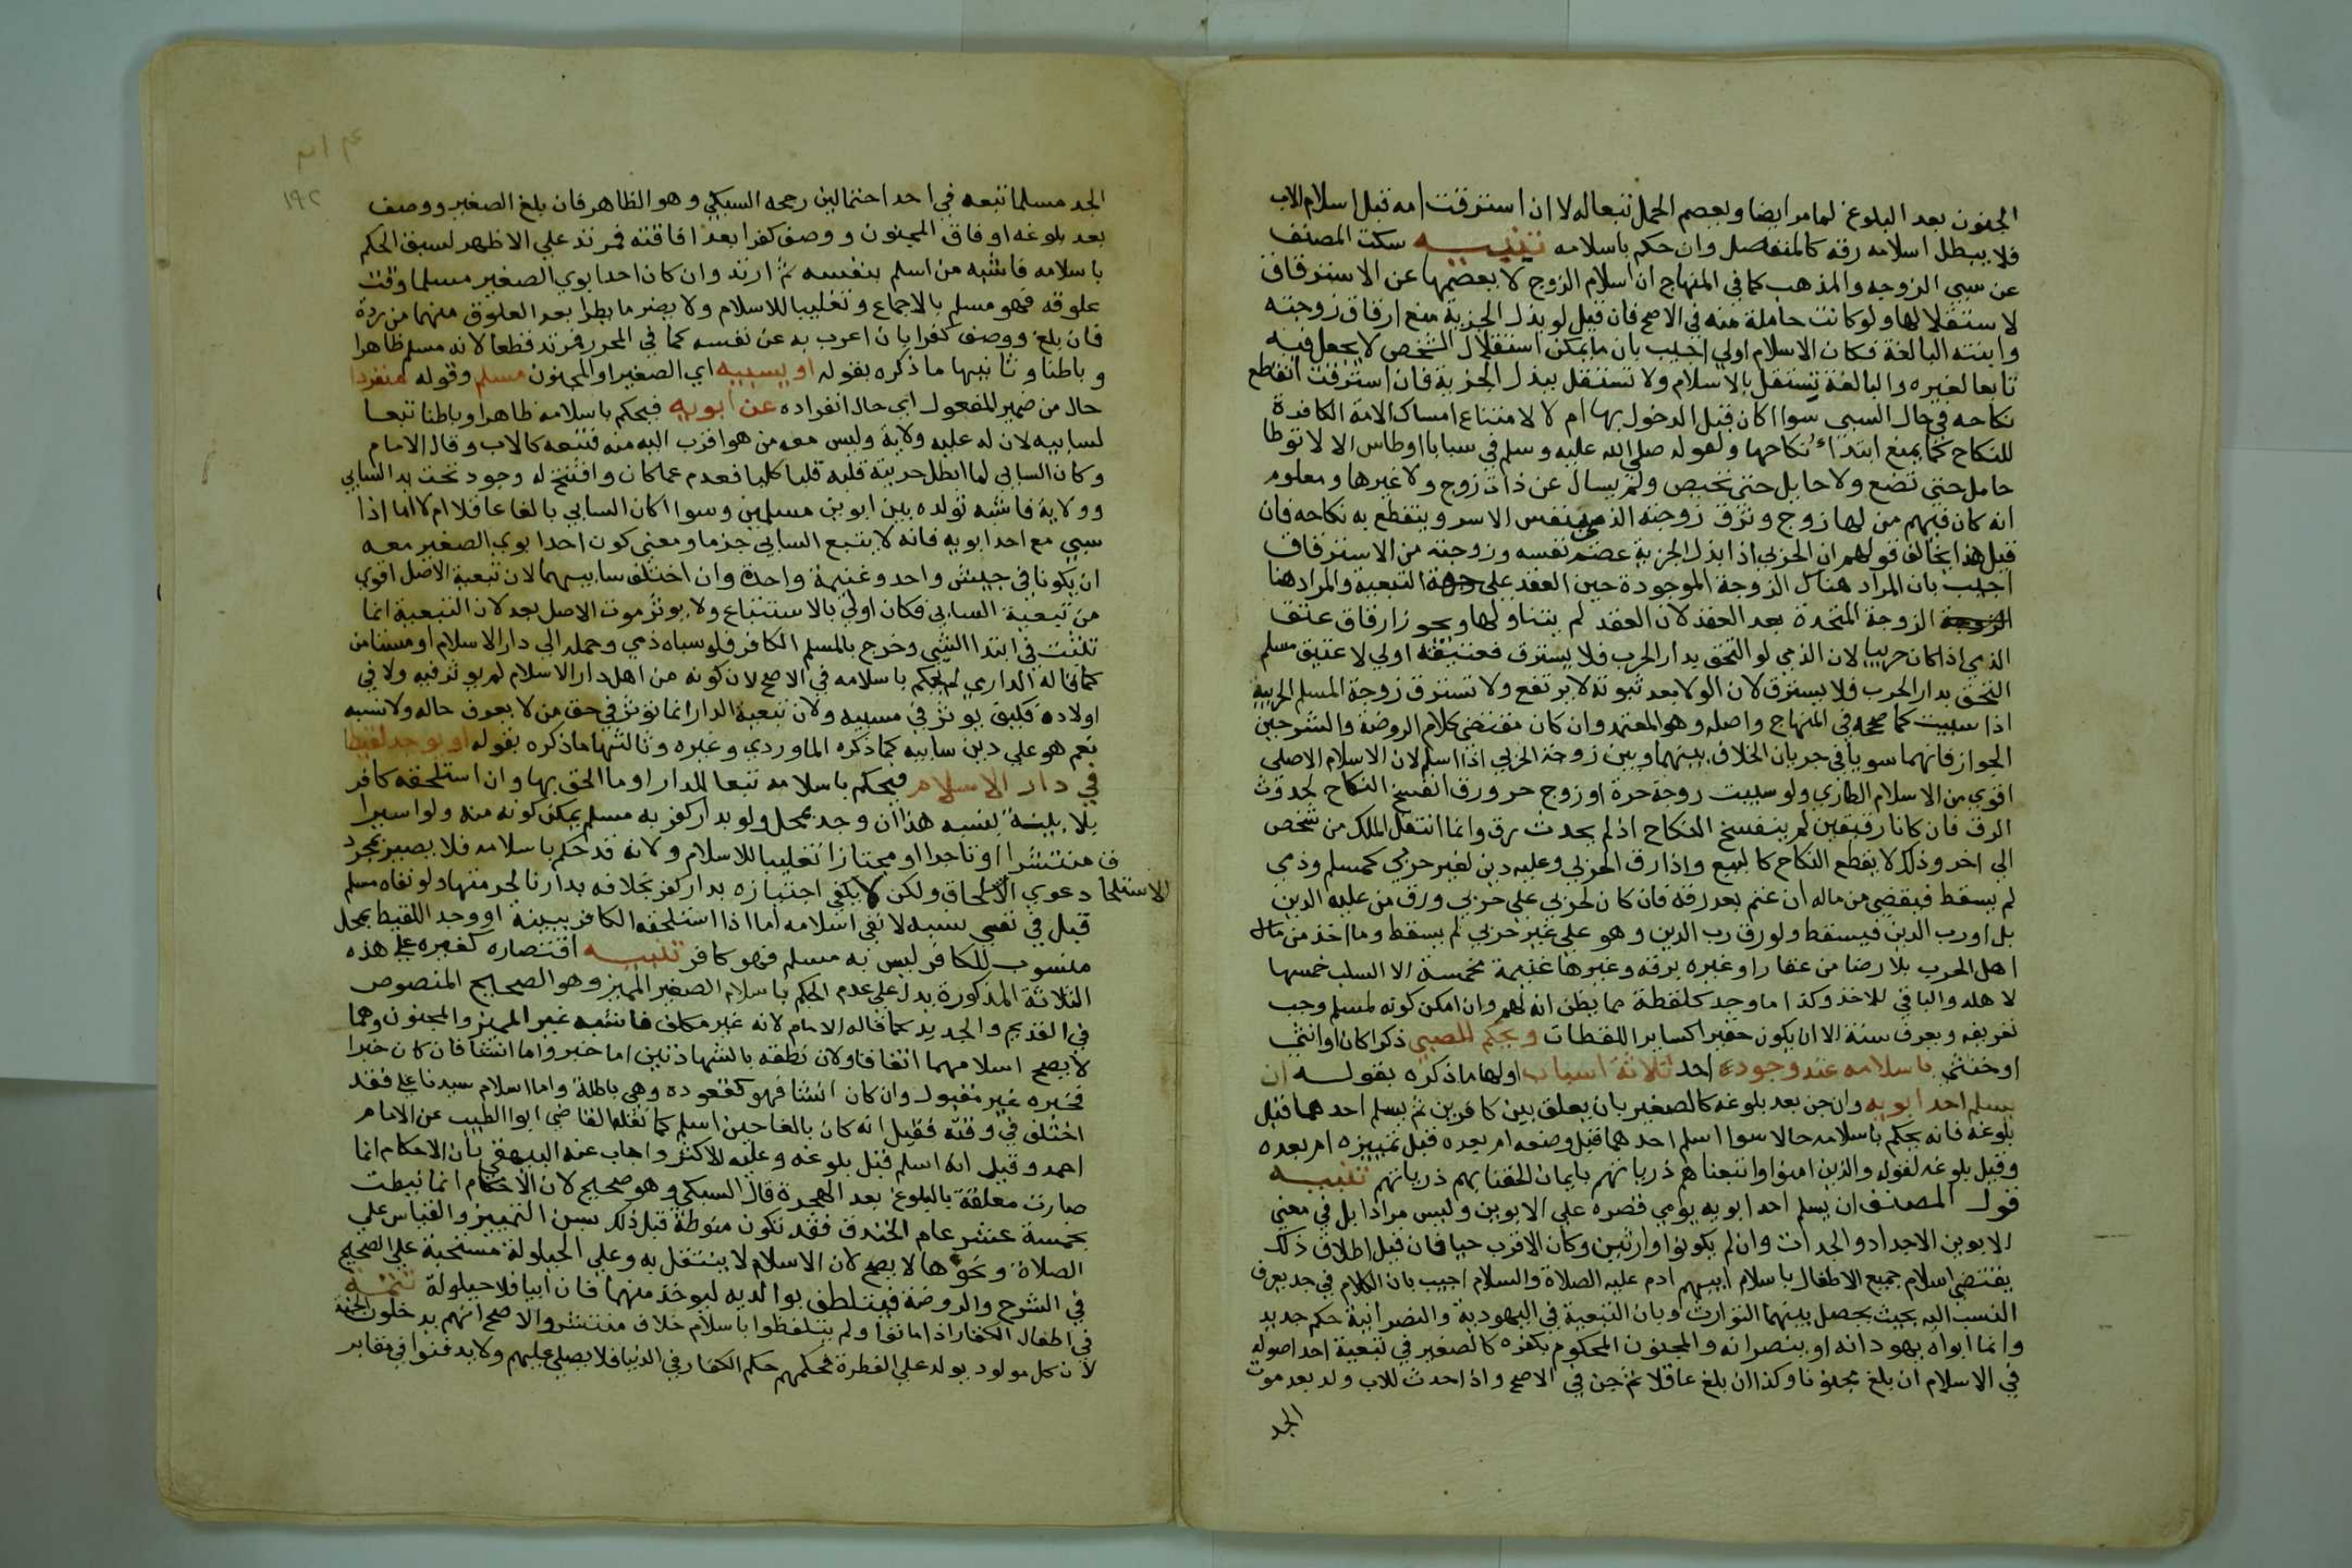 المجنون بعد البلوغ لما مر ايضا ويعصم الحمل تبعا له لا ان استرقت امه قبل اسلام الاب
فلا يبطل اسلامه رقه كالمنفصل وان حكم باسلامه تنبيه سكت المصنف
عن سبي الزوجه والمذهب كما في المنهاج ان اسلام الزوج لا يعصمها عن الاسترقاق
لاستقلالها ولو كانت حاملة منه في الاصح فان قيل لو بذل الجزية منع ارقاق زوجته
وابنته البالغة فكان الاسلام اولي اجيب بان ما يمكن استقلال الشخص لا يجعل فيه
تابعا لغيره والبالغة تستقل بالاسلام ولا تستقل ببذل الجزية فان استرقت انقطع
نكاحه في حال السبي سوا اكان قبل الدخول بها ام لا لامتناع امساك الامة الكافرة
للنكاح كما يمنع ابتداء نكاحها ولقوله صلي الله عليه وسلم في سبايا اوطاس الا لا توطا
حامل حتي تضع ولا حايل حتي تحيض ولم يسال عن ذات زوج ولا غيرها ومعلوم
انه كان فيهم من لها زوج وترق زوجة الذمي بنفس الاسر وينقطع به نكاحه فان
قيل هذا يخالف قولهم ان الحربي اذا بذل الجزية عصم نفسه وزوجته من الاسترقاق
اجيب بان المراد هناك الزوجة الموجودة حين العقد علي جهة التبعية والمراد هنا
الزوجة المتجددة بعد العقد لان العقد لم يتناولها ويجوز ارقاق عتيق
الذمي اذا كان حربيا لان الذمي لو التحق بدار الحرب فلا يسترق فعتيقه اولي لا عتيق مسلم
التحق بدار الحرب فلا يسترق لان الولا بعد ثبوته لا يرتفع ولا تسترق زوجة المسلم الحربية
اذا سبيت كما صححه في المنهاج واصله وهو المعتمد وان كان مقتضي كلام الروضة والشرحين
الجواز فانهما سويا في جريان الخلاف بينهما وبين زوجة الحربي اذا اسلم لان الاسلام الاصلي
اقوي من الاسلام الطاري ولو سبيت زوجة حرة او زوج حر ورق انفسخ النكاح لحدوث
الرق فان كانا رقيقين لم ينفسخ النكاح اذ لم يحدث رق وانما انتقل الملك من شخص
الي اخر وذلك لا يقطع النكاح كالبيع واذا رق الحربي وعليه دين لغير حربي كمسلم وذمي
لم يسقط فيقضي من ماله ان غنم بعد رقه فان كان لحربي علي حربي ورق من عليه الدين
بل او رب الدين فيسقط ولو رق رب الدين وهو علي غير حربي لم يسقط وما اخذ من مال
اهل الحرب بلا رضا من عقار او غيره برقه وغيرها غنيمة مخمسة الا السلب خمسها
لاهله والباقي للاخذ وكذا ما وجد كلقطة مما يظن انه لهم وان امكن كونه لمسلم وجب
تعريفه ويعرف سنة الا ان يكون حقيرا كساير اللقطات ويحكم للصبي ذكرا كان او انثي
او خنثي باسلامه عند وجود احد ثلاثة اسباب اولها ما ذكره بقوله ان
يسلم احد ابويه وان جن بعد بلوغه كالصغير بان يعلق بين كافرين ثم يسلم احدهما قبل
بلوغه فانه يحكم باسلامه حالا سوا اسلم احدهما قبل وضعه ام بعده قبل تمييزه ام بعده
وقبل بلوغه لقوله والذين امنوا واتبعناهم ذرياتهم بايمان الحقنا بهم ذرياتهم تنبيه
قول المصنف ان يسلم احد ابويه يومي قصره علي الابوين وليس مرادا بل في معني
الابوين الاجداد والجدات وان لم يكونوا وارثين وكان الاقرب حيا فان قيل اطلاق ذلك
يقتضي اسلام جميع الاطفال باسلام ابيهم ادم عليه الصلاة والسلام اجيب بان الكلام في جد يعرف
النسب اليه بحيث يحصل بينهما التوارث وبان التبعية في اليهودية والنصرانية حكم جديد
وانما ابواه يهودانه او ينصرانه والمجنون المحكوم بكفره كالصغير في تبعية احد اصوله
في الاسلام ان بلغ مجنونا وكذا ان بلغ عاقلا ثم جن في الاصح واذا حدث للاب ولد بعد موت
الجد
١٩٢
الجد مسلما تبعه في احد احتمالين رجحه السبكي وهو الظاهر فان بلغ الصغير ووصف
بعد بلوغه او فاق المجنون ووصف كفرا بعد افاقته فمرتد علي الاظهر لسبق الحكم
باسلامه فاشبه من اسلم بنفسه ثم ارتد وان كان احد ابوي الصغير مسلما وقت
علوقه فهو مسلم بالاجماع وتغليبا للاسلام ولا يضر ما يطرا بعد العلوق منهما من ردة
فان بلغ ووصف كفرا بان اعرب به عن نفسه كما في المحرر فمرتد قطعا لانه مسلم ظاهرا
وباطنا وثانيها ما ذكره بقوله او يسبيه اي الصغير او المجنون مسلم وقوله منفردا
حال من ضمير المفعول اي حال انفراده عن ابويه فيحكم باسلامه ظاهرا وباطنا تبعا
لسابيه لان له عليه ولاية وليس معه من هو اقرب اليه منه فتبعه كالاب وقال الامام
وكان السابي لما ابطل حريته قلبه قلبا كليا فعدم عما كان وافتتح له وجود تحت يد السابي
وولاية فاشبه تولده بين ابوين مسلمين وسوا اكان السابي بالغا عاقلا ام لا اما اذا
سبي مع احد ابويه فانه لا يتبع السابي جزما ومعني كون احد ابوي الصغير معه
ان يكونا في جيش واحد وغنيمة واحدة وان اختلف سابيهما لان تبعية الاصل اقوي
من تبعية السابي فكان اولي بالاستتباع ولا يوثر موت الاصل بعد لان التبعية انما
تثبت في ابتدا السبي وخرج بالمسلم الكافر فلو سباه ذمي وحمله الي دار الاسلام او مستامن
كما قاله الدارمي لم يحكم باسلامه في الاصح لان كونه من اهل دار الاسلام لم يوثر فيه ولا في
اولاده فكيف يوثر في مسبيه ولان تبعية الدار انما توثر في حق من لا يعرف حاله ولا نسبه
نعم هو علي دين سابيه كما ذكره الماوردي وغيره وثالثها ما ذكره بقوله او يوجد لقيطا
في دار الاسلام فيحكم باسلامه تبعا للدار وما الحق بها وان استلحقه كافر
بلا بينة بنسبه هذا ان وجد بمحل ولو بدار كفر به مسلم يمكن كونه منه ولو اسيرا
منتشرا او تاجرا او مجتازا تغليبا للاسلام ولانه قد حكم باسلامه فلا يصير بمجرد
دعوي الاستلحاق ولكن لا يكفي اجتيازه بدار كفر بخلافه بدارنا لحرمتها ولو نفاه مسلم
قبل في نفي نسبه لا نفي اسلامه اما اذا استلحقه الكافر ببينة او وجد اللقيط بمحل
منسوب للكافر ليس به مسلم فهو كافر تنبيه اقتصاره كغيره علي هذه
الثلاثة المذكورة يدل علي عدم الحكم باسلام الصغير المميز وهو الصحيح المنصوص
في القديم والجديد كما قاله الامام لانه غير مكلف فاشبه غير المميز والمجنون وهما
لا يصح اسلامهما اتفاقا ولان نطقه بالشهادتين اما خبر واما انشا فان كان خبرا
فخبره غير مقبول وان كان انشا فهو كعقوده وهي باطلة واما اسلام سيدنا علي فقد
اختلف في وقته فقيل انه كان بالغا حين اسلم كما نقله القاضي ابو الطيب عن الامام
احمد وقيل انه اسلم قبل بلوغه وعليه الاكثر واجاب عنه البيهقي بان الاحكام انما
صارت معلقة بالبلوغ بعد الهجرة قال السبكي وهو صحيح لان الاحكام انما نيطت
بخمسة عشر عام الخندق فقد تكون منوطة قبل ذلك بسن التمييز والقياس علي
الصلاة ونحوها لا يصح لان الاسلام لا يتنفل به وعلي الحيلولة مستحبة علي الصحيح
في الشرح والروضة فيتلطف بوالديه ليوخذ منهما فان ابيا فلا حيلولة تتمة
في اطفال الكفار اذا ماتوا ولم يتلفظوا باسلام خلاف منتشر والاصح انهم يدخلون الجنة
لان كل مولود يولد علي الفطرة فحكمهم حكم الكفار في الدنيا فلا يصلي عليهم ولا يدفنوا في مقابر